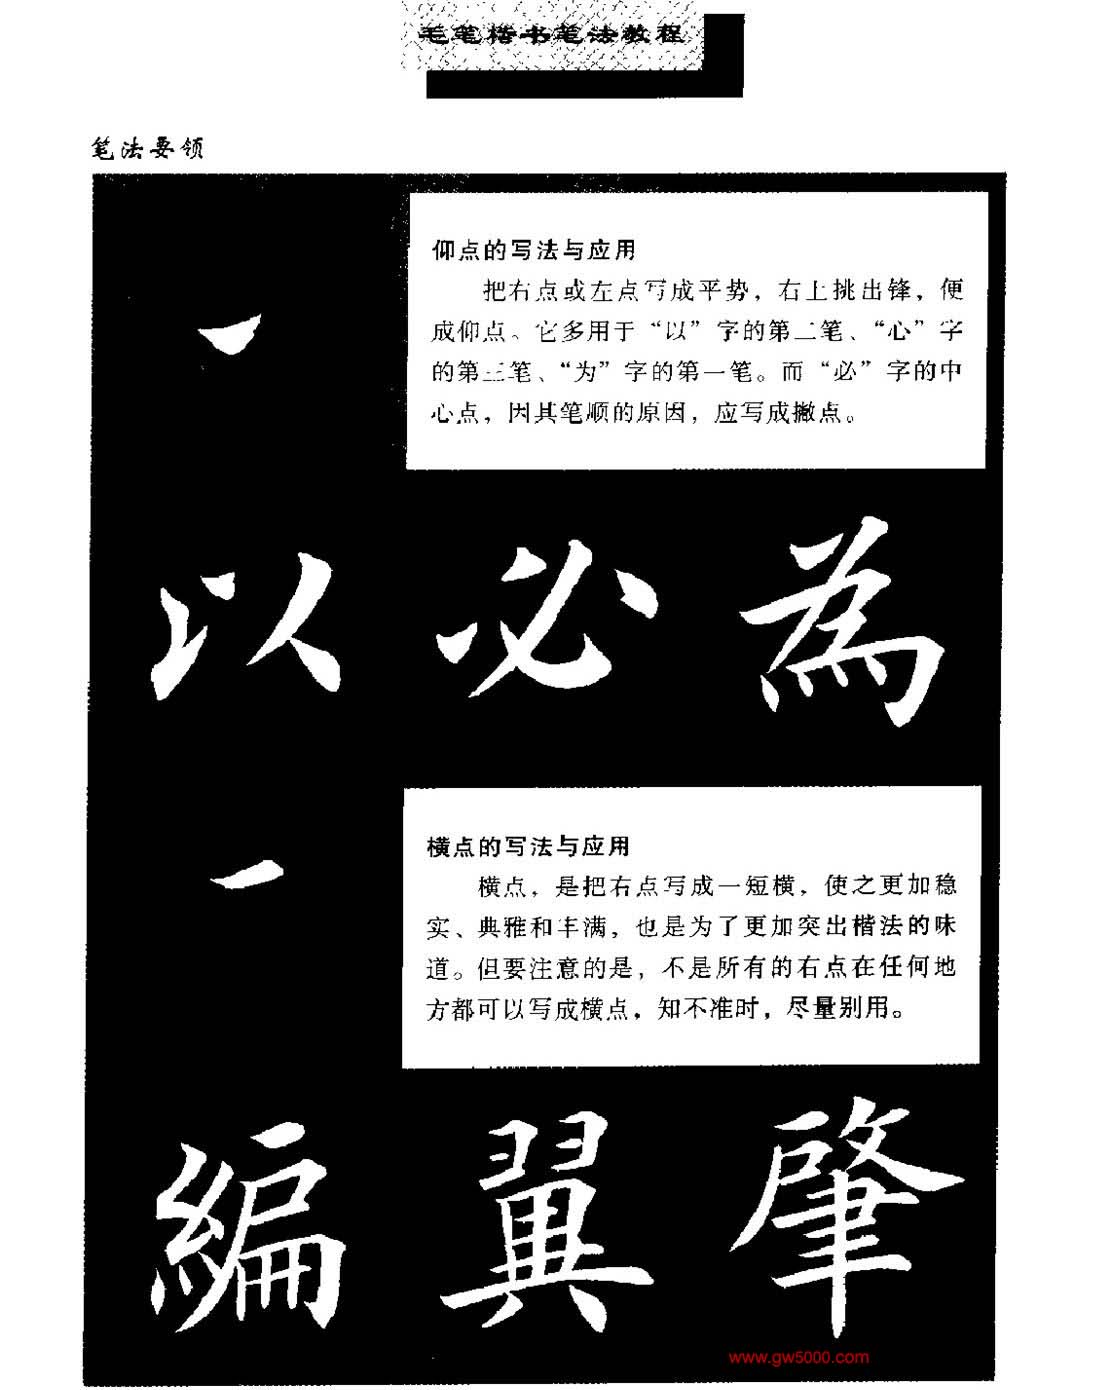 毛笔楷书笔法教程
笔法要领
仰点的写法与应用
把右点或左点写成平势，右上挑出锋，便
成仰点。它多用于“以”字的第二笔、“心”字
的第三笔、“为”字的第一笔。而“必”字的中
心点，因其笔顺的原因，应写成撇点。
以必為
横点的写法与应用
横点，是把右点写成一短横，使之更加稳
实、典雅和丰满，也是为了更加突出楷法的味
道。但要注意的是，不是所有的右点在任何地
方都可以写成横点，知不准时，尽量别用。
編翼肇
www.gw5000.com